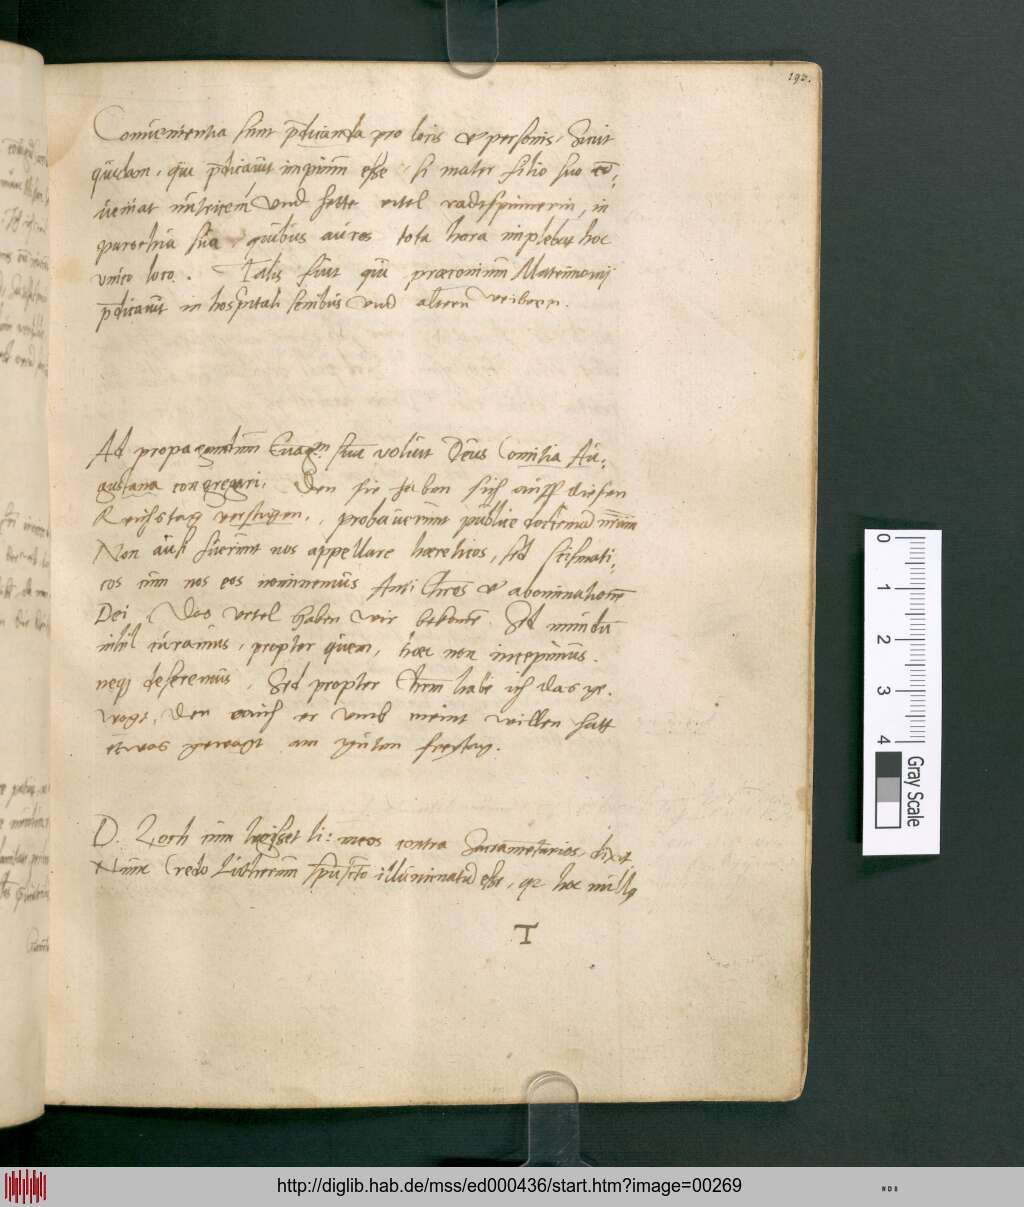 192.
Conuenientia sunt p̄dicanda pro locis et personis. Sicut
quidam, qui p̄dicauit impium esse, si mater filio suo cō¬
ueniat nutricem Vnd hette eitel radtspinnerin, in
parochia sua quibus aures tota hora implebat hoc
vnico loco. Talis fuit qui præconium Matrimonij
p̄dicauit in hospitali senibus vnd alten weibern.
Ad propagandum Euagm̄ suum voluit Deus Comitia Au¬
gustana congregari. Den sie haben sich auff diesen
Reichstag verstigen, probauerunt publice doctrinā nr̄am
Non ausi fuerunt nos appellare hæreticos, sed scismati¬
cos cum nos eos nominemus Anti Chros et abominationē
Dei. Das vrtel haben wir bekomē. Sed mundū
nihil curamus, propter quem, hæc non incepimus.
neq; deseremus. Sed propter Chrm habe ich das ge¬
wogt, Den auch er vmb meint willen hatt
etwas gewagt am guten freytag.
D. Zoch cum legisset li: meos contra Sacramētarios, dixit,
Nunc Credo Lutherum spūscto illuminatū esse, qz hoc nullq
T
0 1 2 3 4
Gray Scale
http://diglib.hab.de/mss/ed000436/start.htm?image=00269